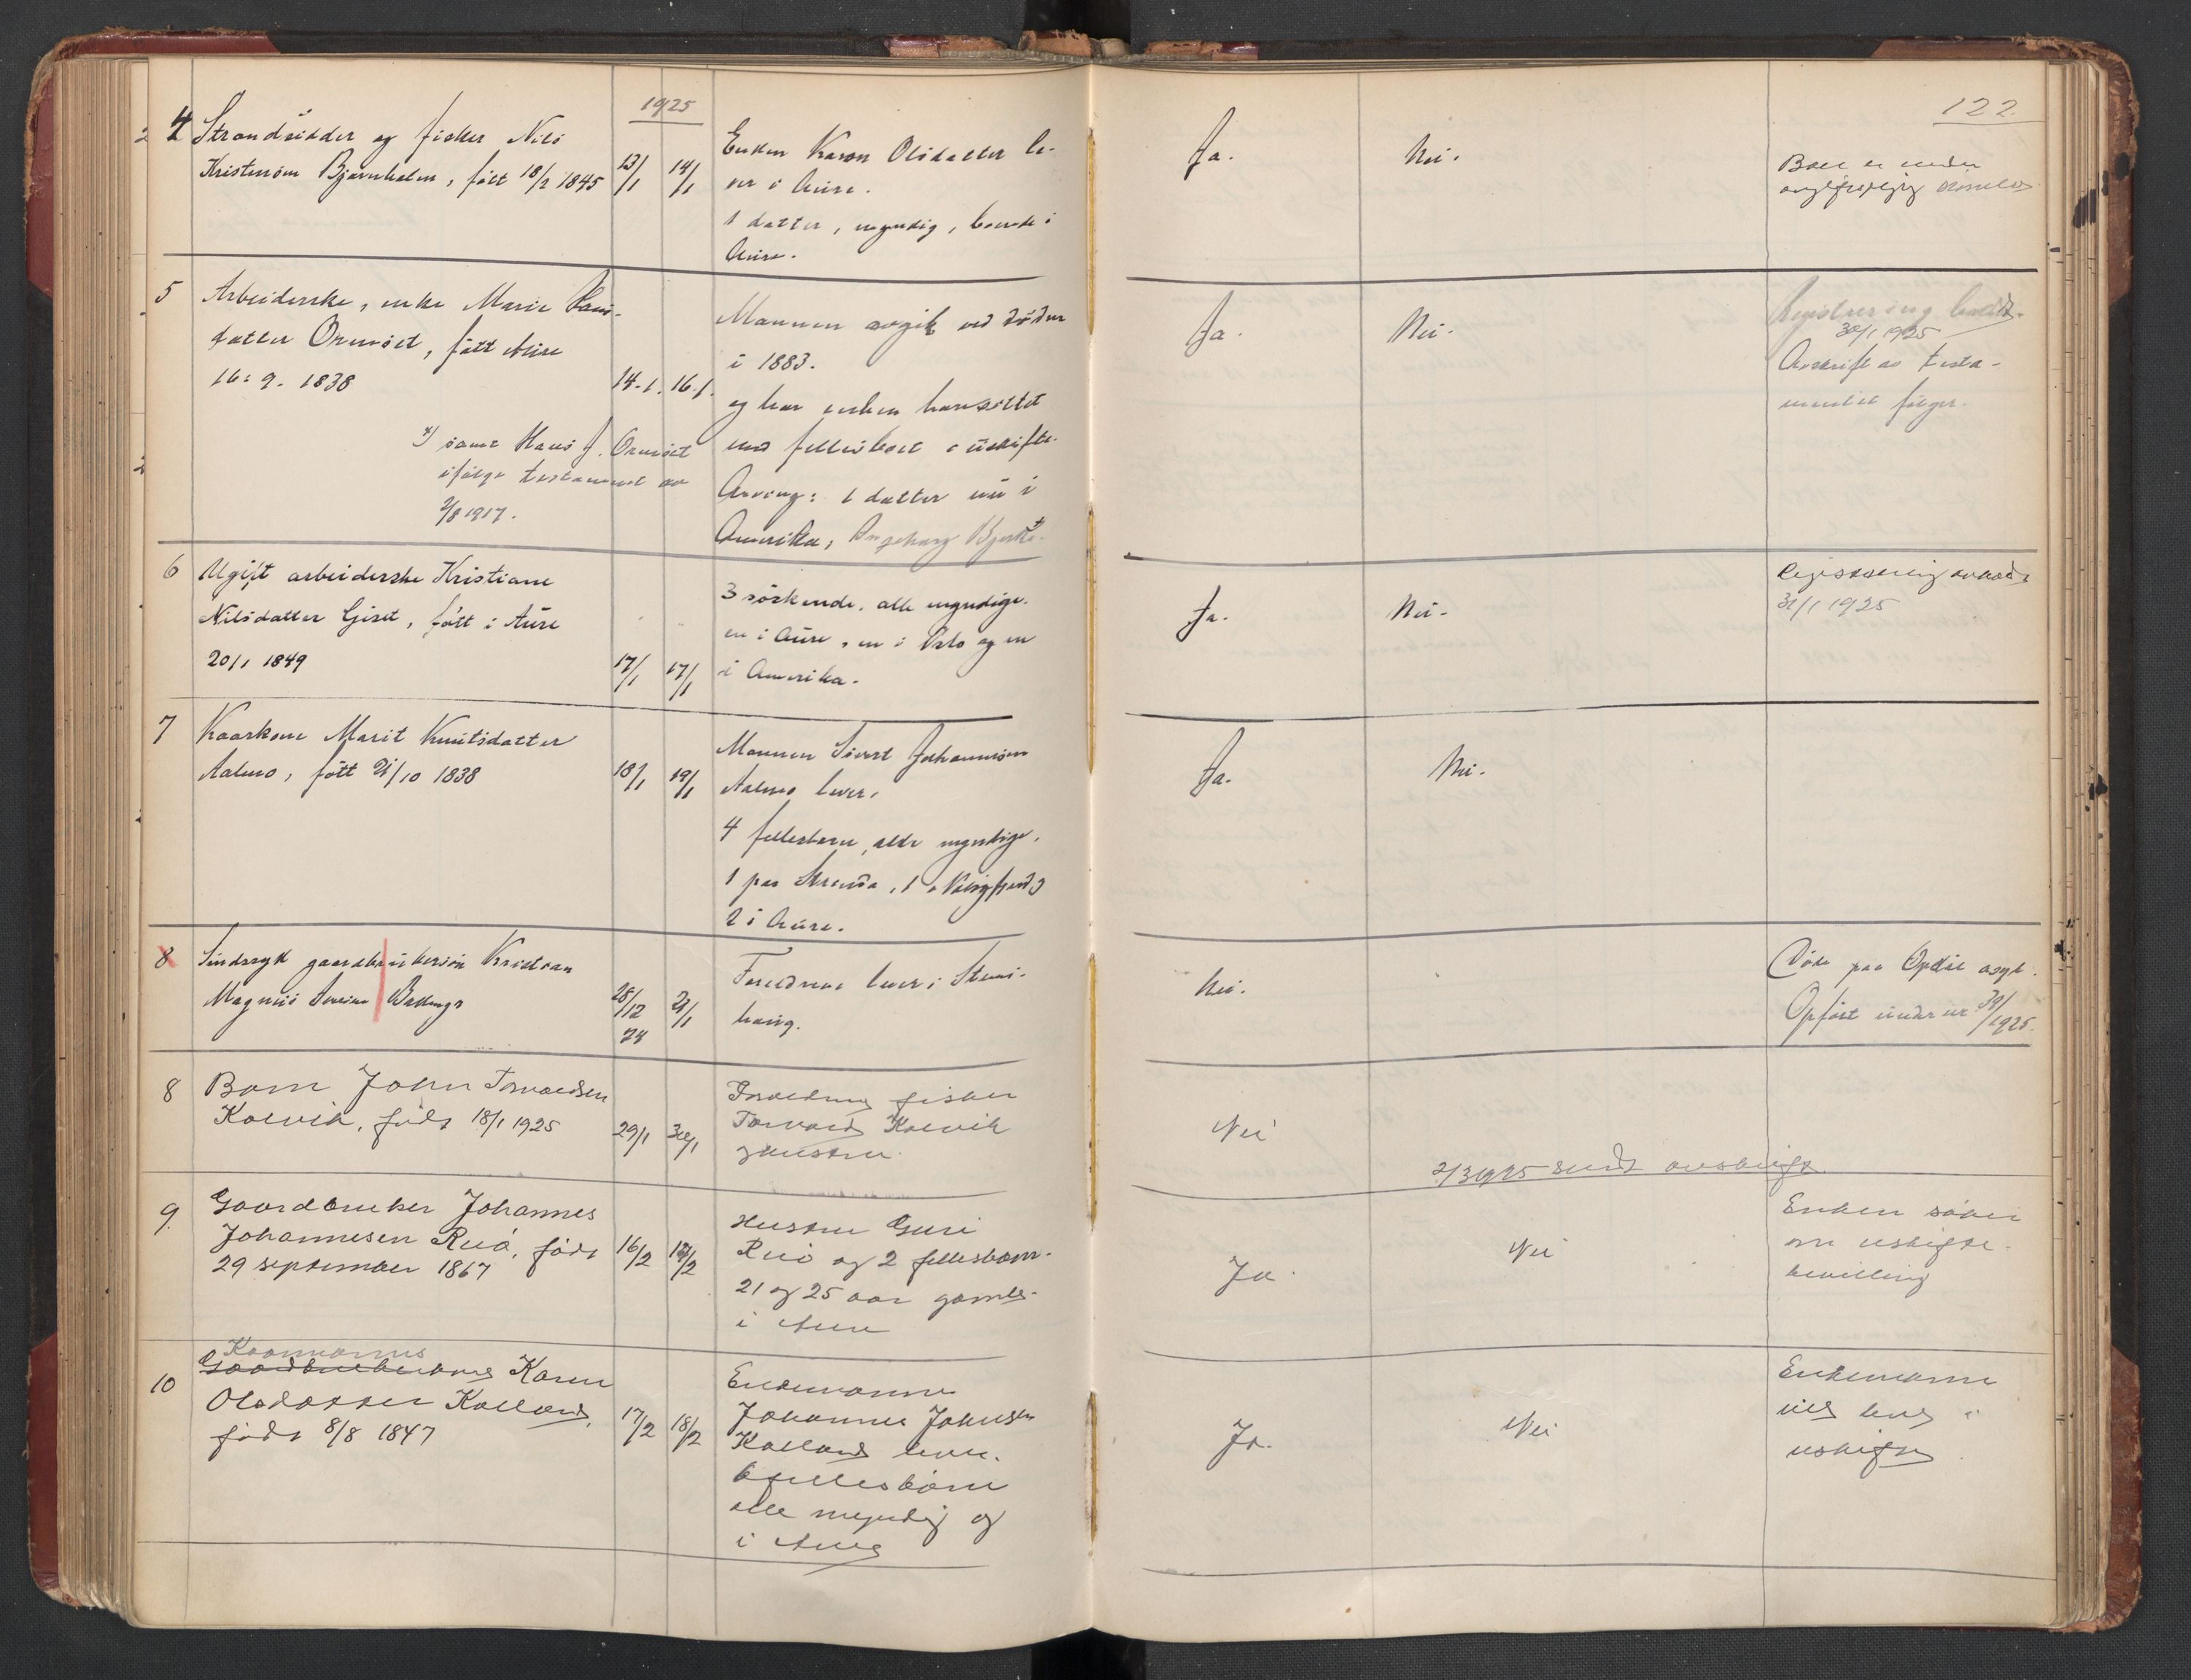 1925
122
4 Strandsidder og fisker Nils
Kristensen Bjørnholm, født 18/2 1845
13/1 14/1
Enken Karen Olsdatter le-
ver i Aure.
1 datter, myndig, boende i
Aure.
Ja.
Nei.
Boet er under
5 Arbeiderske, enke Marie Hans-
datter Ormset, født Aure
16-9-1838
14-1. 16-1.
x) samt Hans J. Ormset
ifølge testament av
2/8 1917.
Mannen avgik ved døden
i 1883.
og har enken hensittet
med fellesboet i uskifte.
Arving: 1 datter nu i
Amerika, Ingeborg
Ja.
Nei.
Registrering
30/1 1925
Avskrift av testa-
mentet følger.
6 Ugift arbeiderske Kristiane
Nilsdatter Giset, født i Aure
20/1 1849
17/1 17/1
3 søskende, alle myndige.
en i Aure, en i Oslo og en
i Amerika.
Ja.
Nei.
Registrering avholdt
31/1 1925
7 Kaarkone Marit Knutsdatter
Aalmo, født 21/10 1838
18/1 19/1
Mannen Sivert Johannesen
Aalmo lever.
4 fellesbarn, alle myndige.
1 paa Strinda, 1 i
2 i Aure.
Ja.
Nei.
8 Sindssyk gaardbrukersøn Kristian
Magnus
28/12 24 21/1
Foreldrene lever i Stems-
haug.
Nei.
Døde paa Opdøl asyl.
Opført under nr 39/1925.
8 Barn John Torvaldsen
Kolvik, født 18/1 1925
29/1 30/1
Foreldrene fisker
Torvald Kolvik
og hustru.
Nei
2/3 1925 sendt avskrift
9. Gaardbruker Johannes
Johannesen Ruø, født
29 september 1867
16/2 18/2
Hustru Guri
Ruø og 2 fellesbarn.
21 og 25 aar gamle.
i Aure
Ja.
Nei
Enken søker
om uskifte-
bevilling
10 Gaardbrukerkone Karen
Olsdatter Kalland,
født 8/8 1847
17/2 18/2
Enkemannen
Johannes Johnsen
Kalland lever.
6 fellesbarn
alle myndig og
i Aure
Ja.
Nei
Enkemannen
vil leve i
uskifte